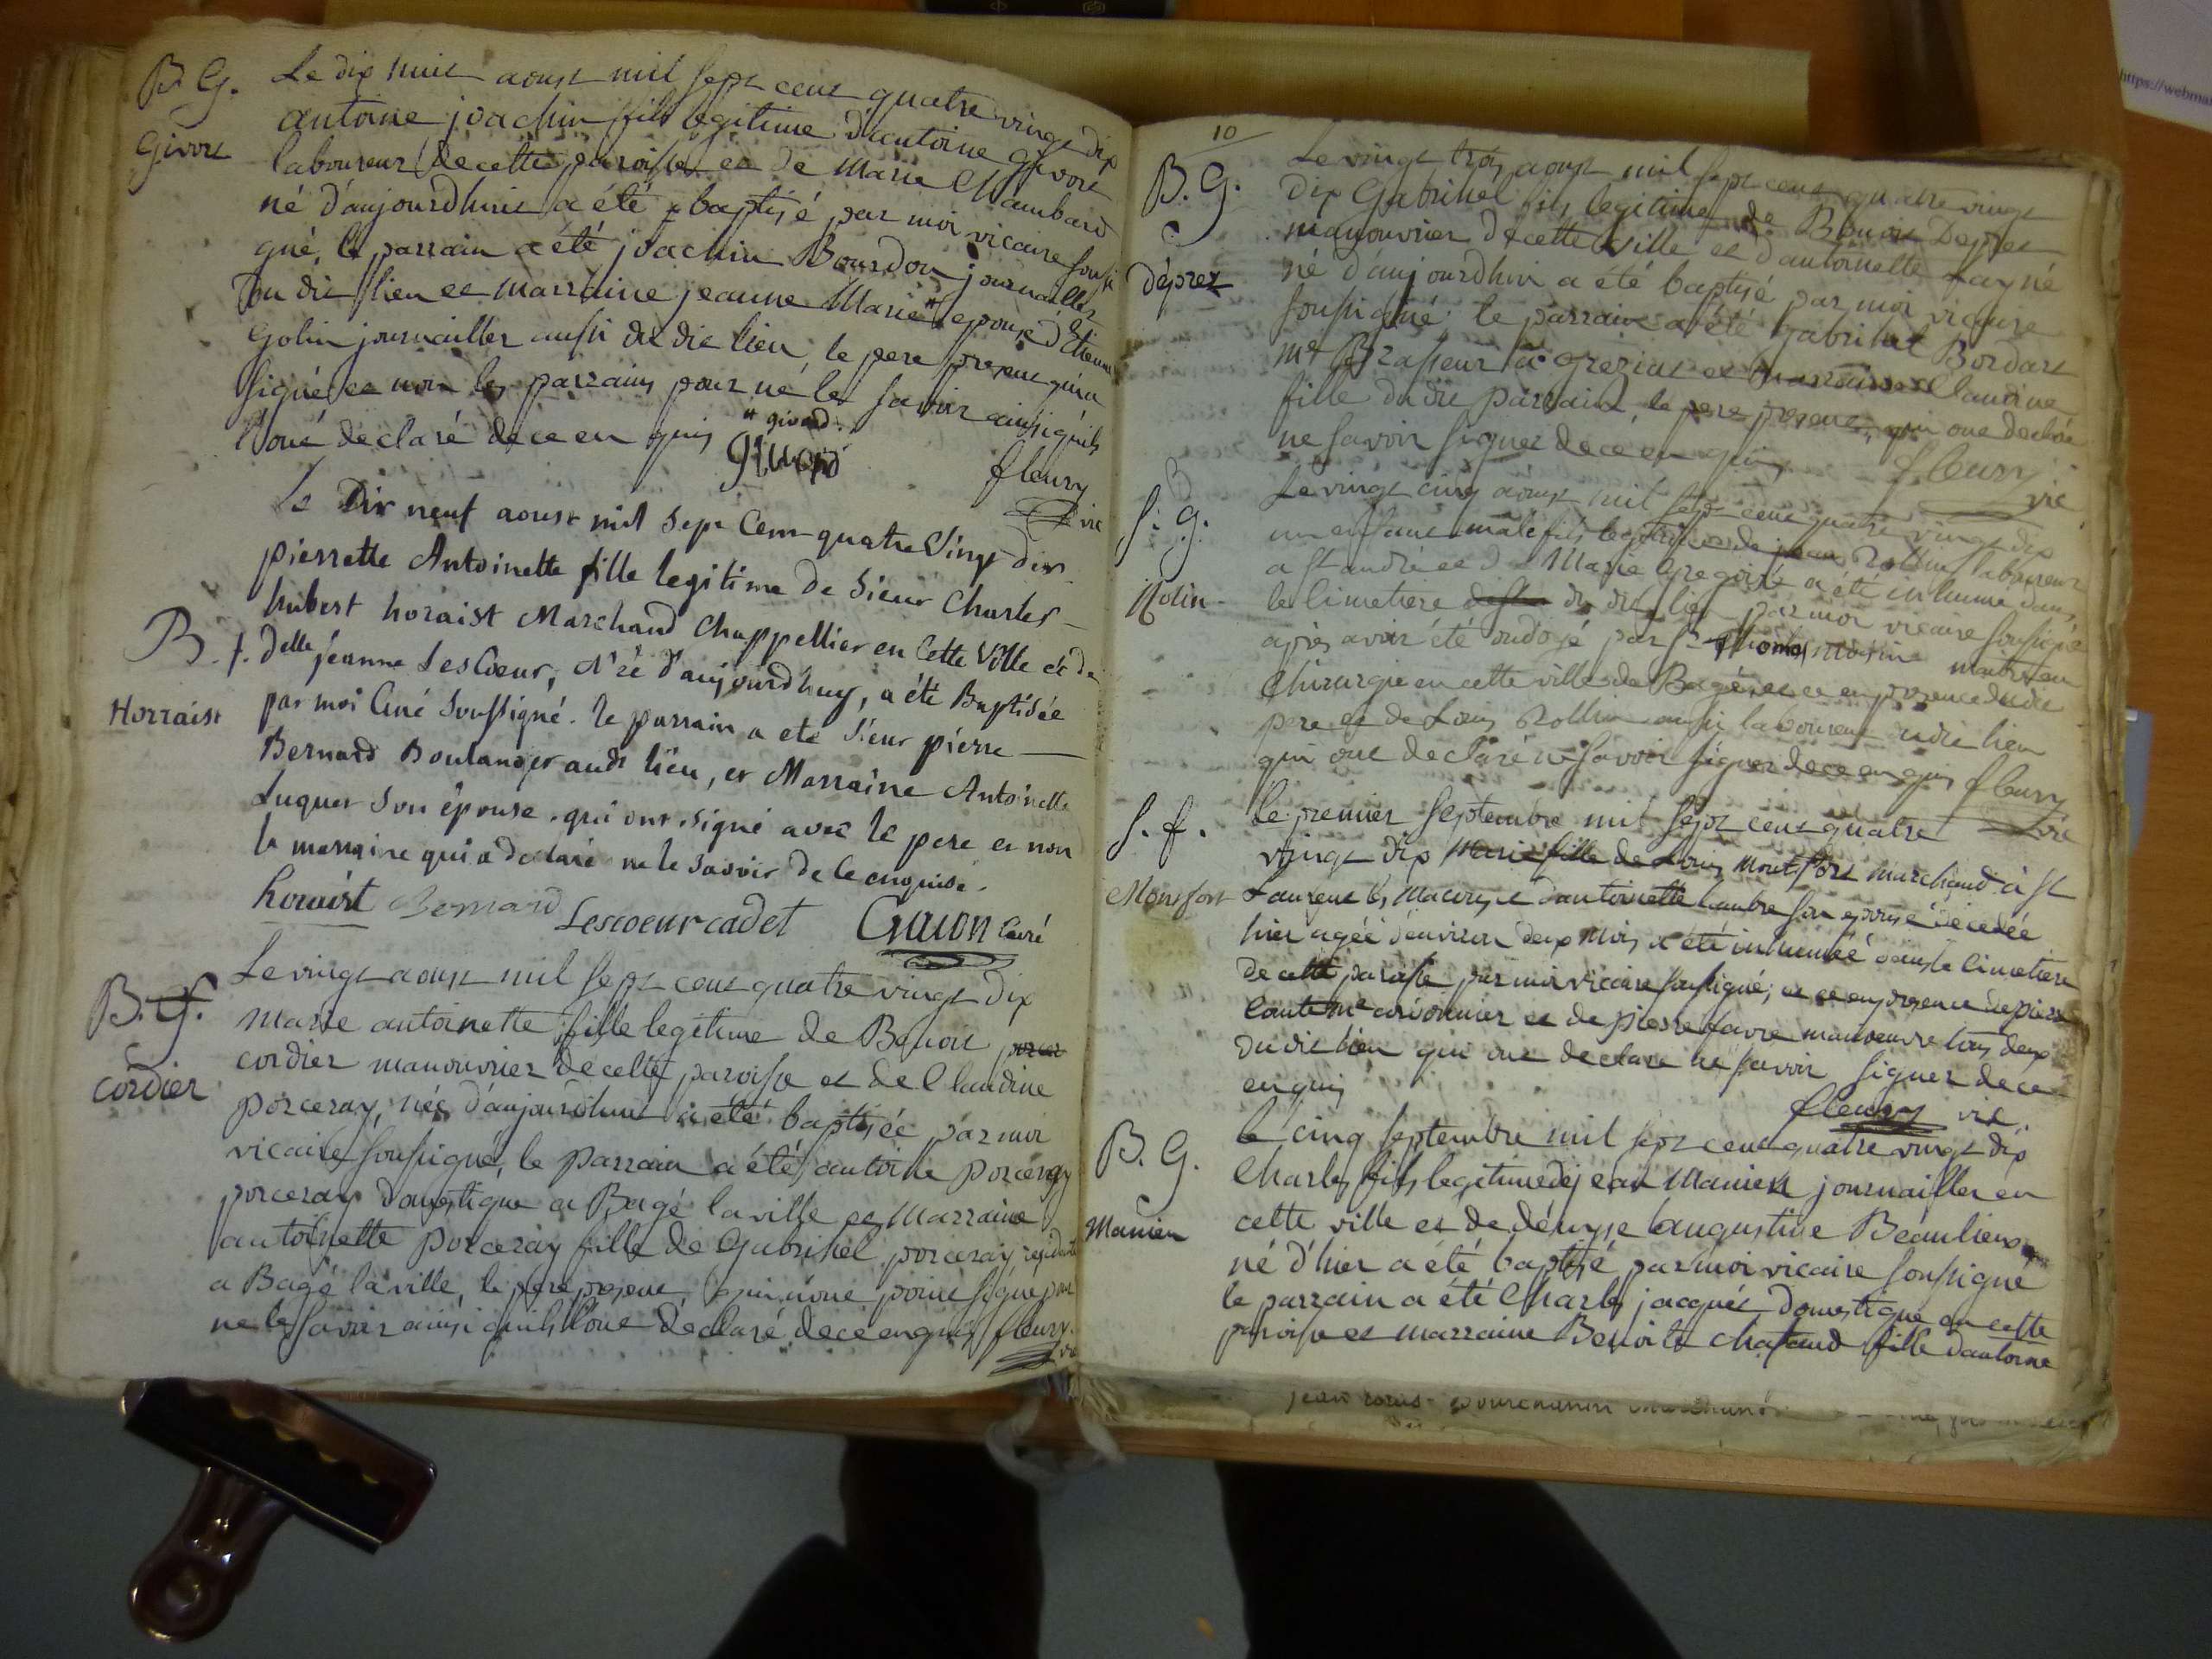 B. G.
Givort
Le dix huit aoust mil sept cent quatre vingt dix
antoine joachin fils legitime d'antoine Givort
laboureur de cette paroisse et de Marie Chambard
né d'aujourdhuit a été baptisé par moi vicaire soussi
gné, le parrain a été joachin Bourdon journallier
du dit lieu et marraine jeanne Marie * epouse d'Etienne
Golin journailler aussi du dit lieu, le pere present qui a
signé et non les parrains pour ne le savoir ainsi quils
l'ont declaré de ce en quis
* givord
givord
fleury
vic
B. f.
Horraist
Le Dix neuf aoust mil sept Cent quatre Vingt dix
pierrette Antoinette fille legitime de Sieur Charles
hubert horaist Marchand Chappellier en Cette Ville et de
Delle jeanne LesCoeur, Née d'aujourdhuy, a été Baptisée
par moi Curé Soussigné. le parrain a eté Sieur pierre
Bernard Boulanger audt lieu, et Marraine Antoinette
Luquet Son épouse. qui ont signé avec le pere et non
la marraine qui a declaré ne le Savoir de Ce enquise.
horaist Bernard Lescoeur cadet Gauon Curé
B. f.
Cordier
Le vingt aoust mil sept cent quatre vingt dix
Marie antoinette fille legitime de Benoit porcer
cordier manouvrier de cette paroisse et de Claudine
porceray, née d'aujourdhuit a été baptisée par moi
vicaire soussigné, le parrain a été antoine porceray
porceray domestique a Bagé la ville et marraine
antoinette porceray fille de Gabrihel porceray residante
a Bagé la ville, le pere present, qui n'ont point signé pour
ne le savoir ainsi quils l'ont declaré de ce enquis fleury
vic
10
B. G.
déprez
Le vingt trois aoust mil sept cent quatre vingt
dix Gabrihel fils legitime de Benoit Deprez
manouvrier de cette ville et d'antoinette fay né
né d'aujourdhui a été baptisé par moi vicaire
soussigné; le parrain a été Gabrihel Bordart
Me Brasseur a Grezias et marraine Claudine
fille du dit parrain, le pere present, qui ont declaré
ne savoir signer de ce en quis
fleury
vic
S. G.
Rolin
Le vingt cinq aoust mil sept cent quatre vingt dix
un enfant male fils legitime de jean Rollin laboureur
a St andré et de Marie Gregoire a été inhumé dans
le Cimetiere du dit lieu par moi vicaire soussigné
après avoir été ondoyé par Sr Thomas maitre en
Chirurgie en cette ville de Bagé, et ce en presence du dit
pere et de Louis Rollin aussi laboureur audit lieu
qui ont declaré ne savoir signer de ce enquis fleury
vic
S. f.
Monsfort
Le premier Septembre mil sept cent quatre
vingt dix Marie fille de Louis Montfort marchand a St
Laurent les Macon, et d'antoinette son epouse decedée
hier agée d'environ deux mois a été inhumée dans le Cimetiere
de cette paroisse par moi vicaire soussigné; et ce en presence de pierre
et de pierre favre manoeuvre tous deux
du dit lieu qui ont declaré ne savoir signer de ce
en quis
fleury vic.
B. G.
Manien
le cinq Septembre mil sept cent quatre vingt dix
Charles fils legitime de jean Manien journailler en
cette ville et de dényse augustine Beaulieux
né d'hier a été baptisé par moi vicaire soussigné
le parrain a été Charles jacques domestique en cette
paroisse et marraine Benoite chataud fille d'antoine
https://webmai